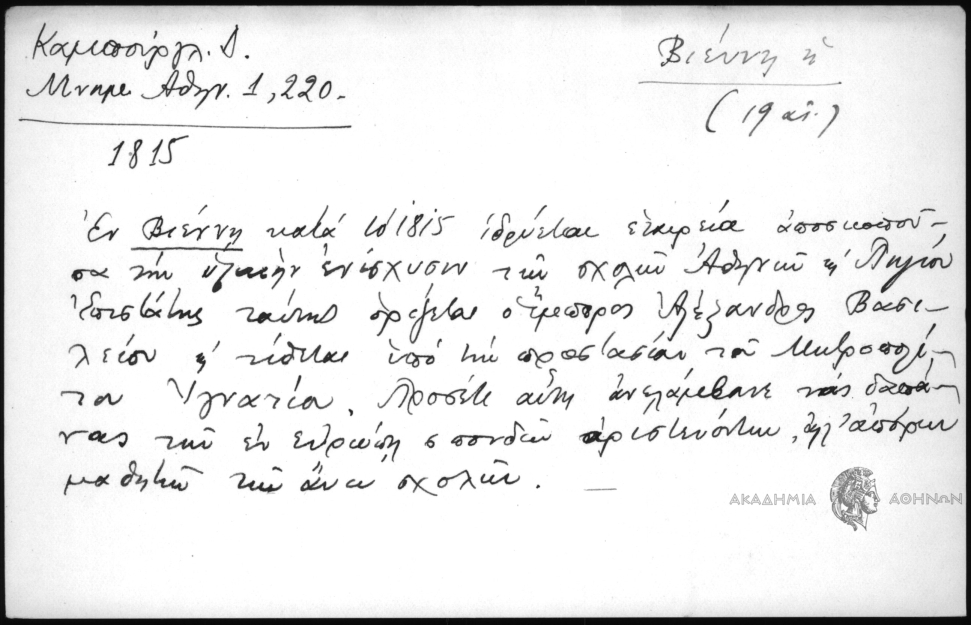 Καμπούρογλ. Δ.
Μνημ. Αθην. 1, 220.
1815
Βιέννη ἡ
(19 αἰ.)
Ἐν Βιέννῃ κατά τό 1815 ἱδρύεται ἑταιρεία ἀποσκοποῦ-
σα τήν ὑλικήν ἐνίσχυσιν τῶν σχολῶν Ἀθηνῶν & Πηλίου
Ἐπιστάτης ταύτης ὁρίζεται ὁ ἔμπορος Ἀλέξανδρος Βασι-
λείου & τίθεται ὑπό τήν προστασίαν τοῦ Μητροπολί-
του Ἰγνατίου. Προσέτι αὕτη ἀνελάμβανε τάς δαπά-
νας τῶν ἐν Εὐρώπῃ σπουδῶν ἀριστευόντων, ἀλλ' ἀπόρων
μαθητῶν τῶν ἄνω σχολῶν.
ΑΚΑΔΗΜΙΑ ΑΘΗΝΩΝ